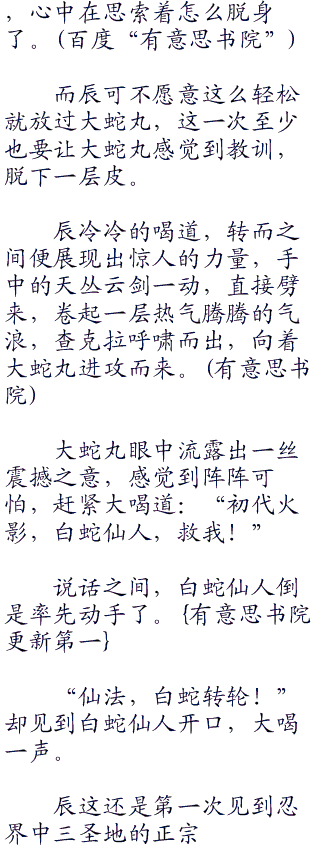 ，心中在思索着怎么脱身
了。(百度“有意思书院”)
而辰可不愿意这么轻松
就放过大蛇丸，这一次至少
也要让大蛇丸感觉到教训，
脱下一层皮。
辰冷冷的喝道，转而之
间便展现出惊人的力量，手
中的天丛云剑一动，直接劈
来，卷起一层热气腾腾的气
浪，查克拉呼啸而出，向着
大蛇丸进攻而来。(有意思书
院)
大蛇丸眼中流露出一丝
震撼之意，感觉到阵阵可
怕，赶紧大喝道：“初代火
影，白蛇仙人，救我！”
说话之间，白蛇仙人倒
是率先动手了。{有意思书院
更新第一}
“仙法，白蛇转轮！”
却见到白蛇仙人开口，大喝
一声。
辰这还是第一次见到忍
界中三圣地的正宗